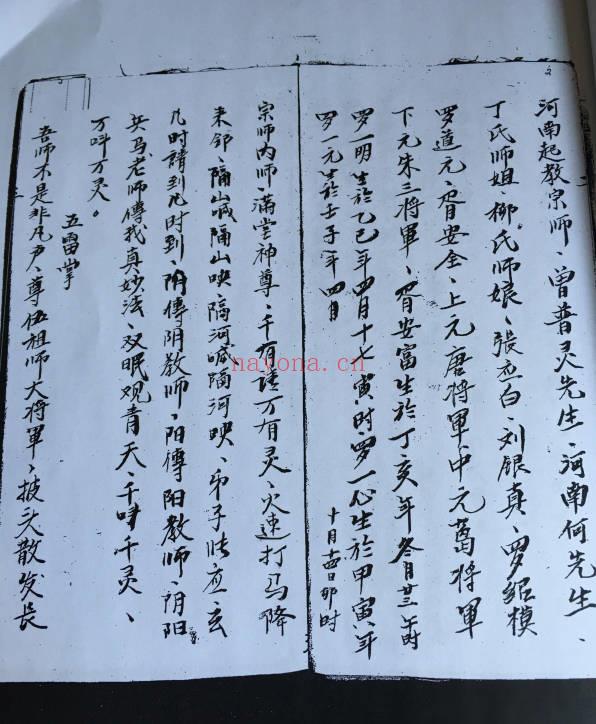 2
河南起教宗师、曾普灵先生、河南何先生、
丁氏师姐、柳氏师娘、张杰白、刘银真、罗绍模
罗道元、胥安全、上元唐将軍、中元葛将軍
下元朱三将軍、胥安富生於丁亥年冬月廿三午时
罗一明生於乙巳年四月十七寅时、罗一心生於甲寅年
十月 日卯时
罗一元生於壬子年四月
宗师内师、满堂神尊、千有 万有灵、火速打马降
来 、隔山喊隔山 、隔河喊隔河 、弟子 应玄
几时請到几时到、阴傳阴教师、阳傳阳教师、阴阳
共马老师傳我真妙法、双眠观青天、千叫千灵、
万叫万灵。
五雷掌
吾师不是非凡声、尊伍祖师大将軍、披头散发長
nayona.cn